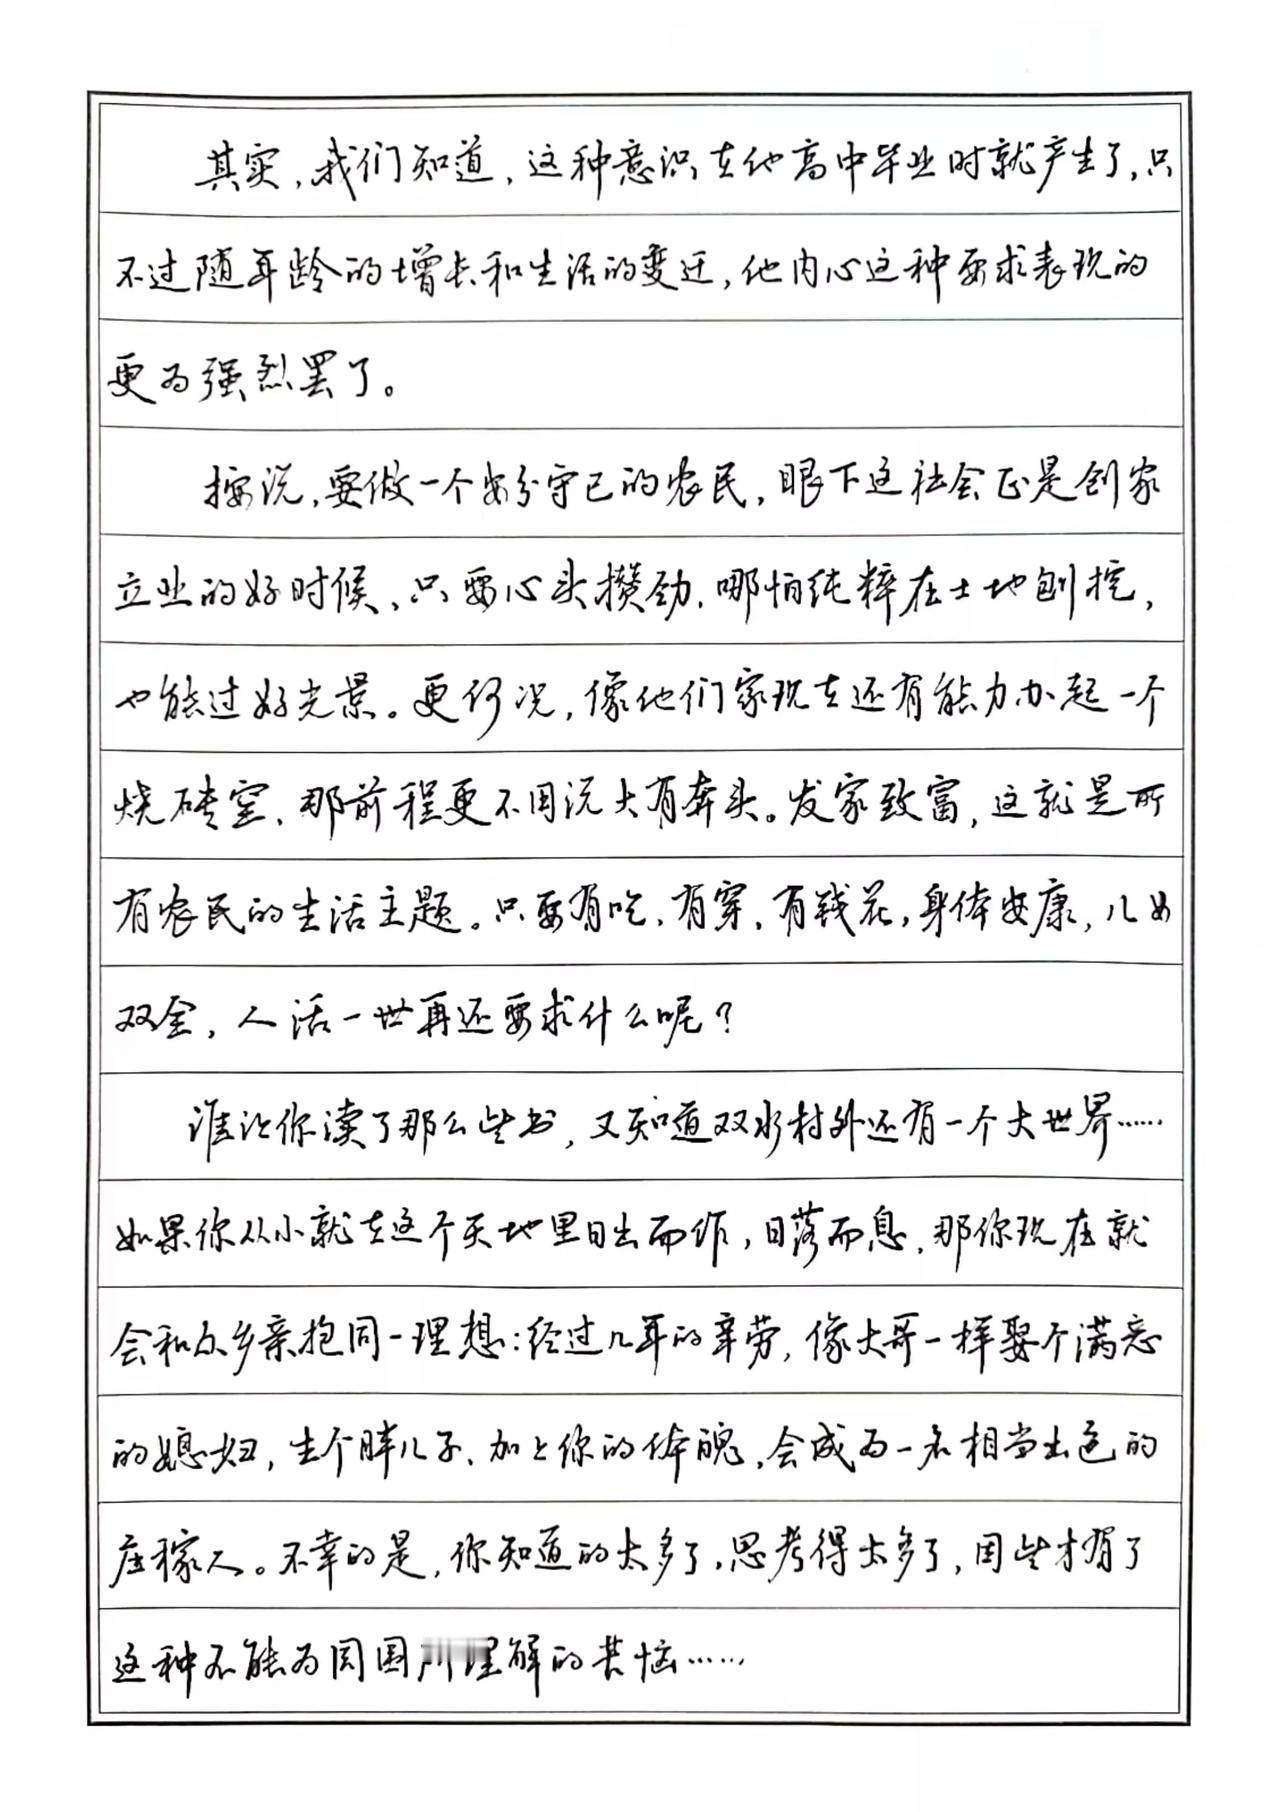 其实，我们知道，这种意识在他高中毕业时就产生了，只
不过随年龄的增长和生活的变迁，他内心这种要求表现的
更为强烈罢了。
按说，要做一个安分守己的农民，眼下这社会正是创家
立业的好时候，只要心头攒劲，哪怕纯粹在土地刨挖，
也能过好光景。更何况，像他们家现在还有能力办起一个
烧砖窑，那前程更不用说大有奔头。发家致富，这就是所
有农民的生活主题。只要有吃，有穿，有钱花，身体安康，儿女
双全，人活一世再还要求什么呢？
谁让你读了那么些书，又知道双水村外还有一个大世界……
如果你从小就在这个天地里日出而作，日落而息，那你现在就
会和众乡亲抱同一理想：经过几年的辛劳，像大哥一样娶个满意
的媳妇，生个胖儿子，加上你的体魄，会成为一名相当出色的
庄稼人。不幸的是，你知道的太多了，思考得太多了，因些才有了
这种不能为周围所理解的苦恼……